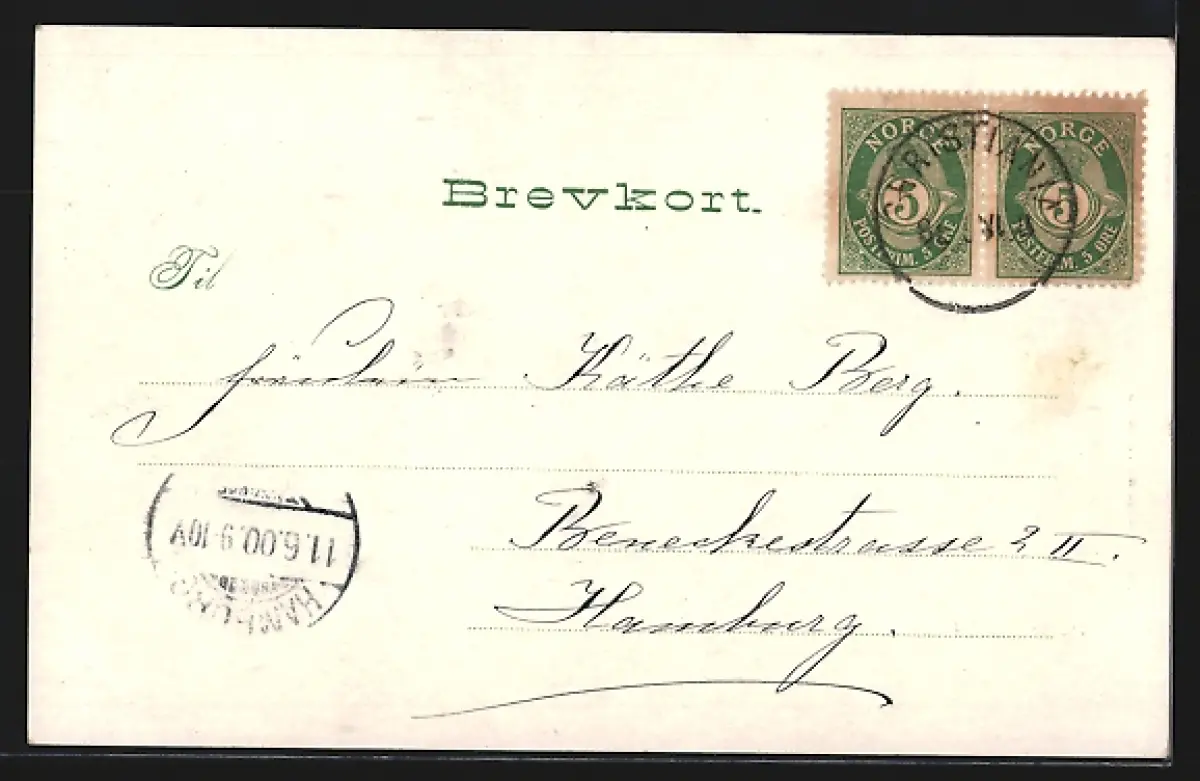 NORGE NORGE
5 5
POSTFRIM. 5 ØRE POSTFRIM. 5 ØRE
KRISTIANIA
Brevkort.
Til
Fräulein Käthe Berg.
Beneckestrasse 2 II.
Hamburg.
11.6.00.9-10V
HAMBURG